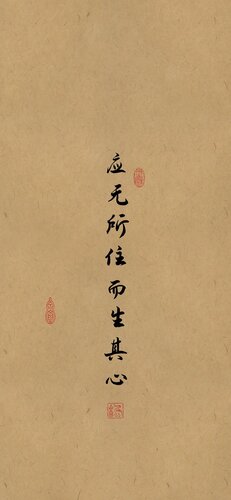 应无所住而生其心